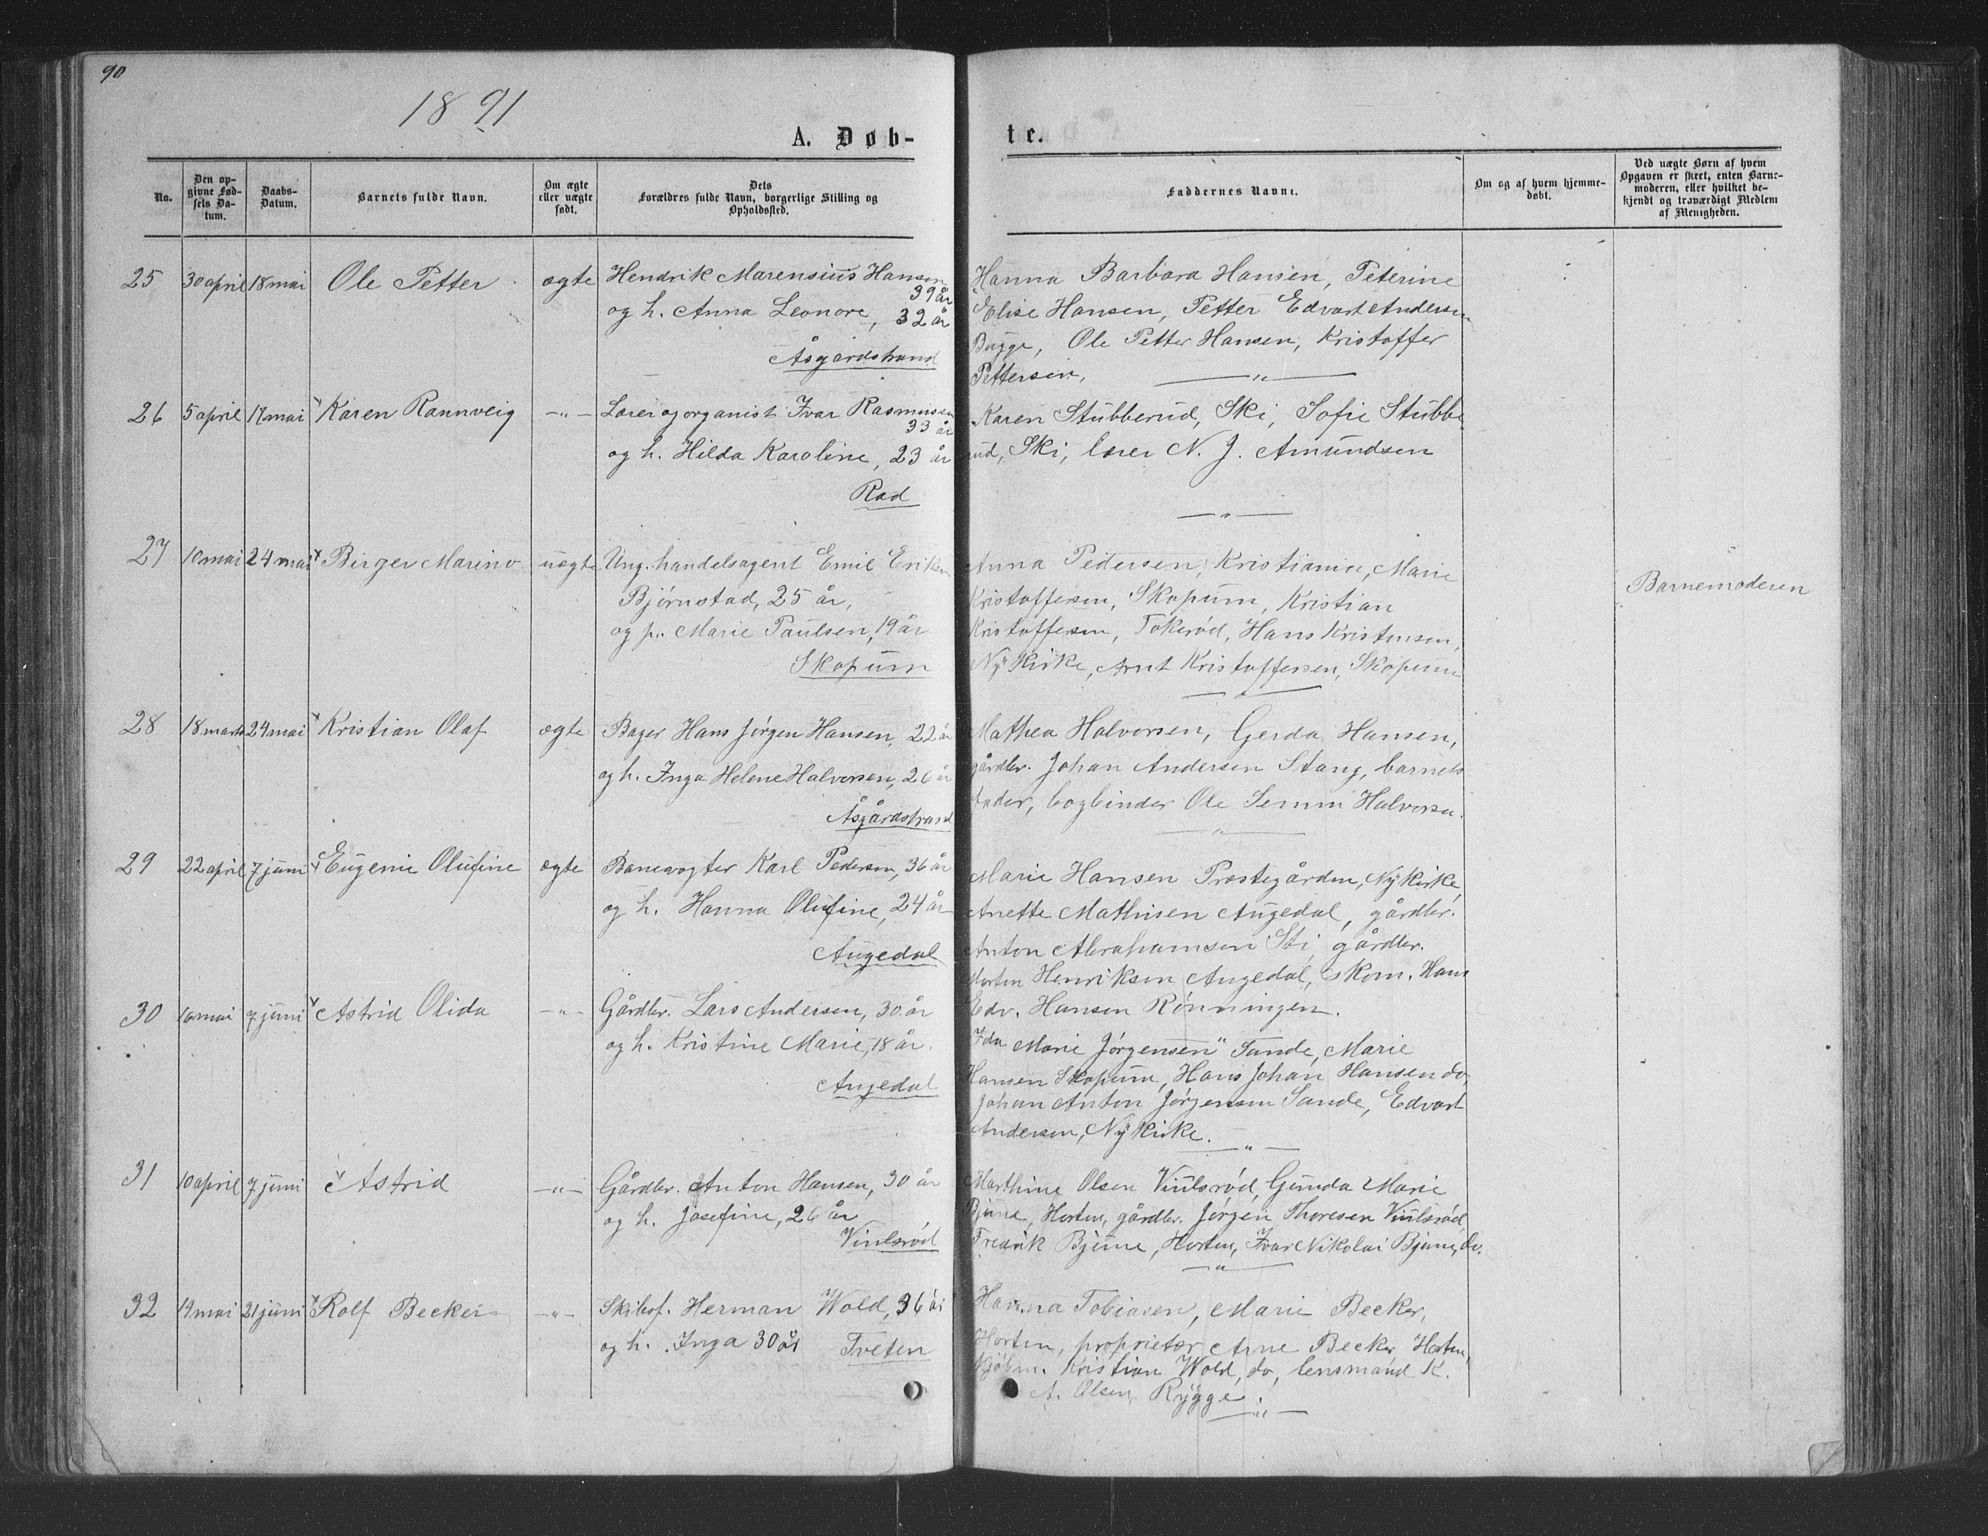 90
1891
A. Døb-
te.
No.
Den op-
givne Fød-
sels Da-
tum.
Daabs-
Datum.
Barnets fulde Navn.
Om ægte
eller uægte
født.
Dets
Forældres fulde Navn, borgerlige Stilling og
Opholdssted.
Faddernes Navne.
Om og af hvem hjemme-
døbt.
Ved uægte Børn af hvem
Opgaven er skeet, enten Barne-
moderen, eller hvilket be-
kjendt og troværdigt Medlem
af Menigheden.
25 30 april 18 mai Ole Petter ægte Hendrik Marensius Hansen
39 år
og h. Anna Leonore, 32 år
Åsgårdstrand
Hanna Barbara Hansen, Peterine
Elise Hansen, Petter Edvart Andersen
Bugge, Ole Petter Hansen, Kristoffer
Pettersen,
26 5 april 17 mai Karen Rannveig -"- Lærer og organist Ivar Rasmussen
33 år
og h. Hilda Karoline, 23 år
Rød
Karen Stubberud, Ski, Sofie Stubbe
rud, Ski, lærer N. J. Amundsen
27 10 mai 24 mai Birger Marino uægte Ung. handelsagent Emil Eriksen
Bjørnstad, 25 år,
og p. Marie Paulsen, 19 år
Skopum
Anna Pedersen, Kristiania, Marie
Kristoffersen, Skopum, Kristian
Kristoffersen, Tokerød, Hans Kristensen,
Nykirke, Arnt Kristoffersen, Skopum
Barnemoderen
28 18 marts 24 mai Kristian Olaf ægte Bager Hans Jørgen Hansen, 22 år
og h. Inga Helene Halvorsen, 26 år
Åsgårdstrand
Mathea Halvorsen, Gerda Hansen,
gårdbr. Johan Andersen Stang, barnets
fader, bogbinder Ole Semm Halvorsen.
29 22 april 7 juni Eugenie Olufine ægte Banevogter Karl Pedersen, 36 år
og h. Hanna Olufine, 24 år
Augedal
Marie Hansen Prestegården, Nykirke,
Anette Mathisen Augedal, gårdbr.
Anton Abrahamsen Sti, gårdbr.
Morten Henriksen Augedal, skom. Hans
Edv. Hansen Rønningen.
30 10 mai 7 juni Astrid Olida -"- Gårdbr. Lars Andersen, 30 år
og h. Kristine Marie, 18 år.
Augedal
Ida Marie Jørgensen Sande, Marie
Hansen Skopum, Hans Johan Hansen do.
Johan Anton Jørgensen Sande, Edvart
Andersen, Nykirke.
31 10 april 7 juni Astrid -"- Gårdbr. Anton Hansen, 30 år
og h. Josefine, 26 år
Viulsrød
Marthine Olsen Viulsrød, Gunda Marie
Bjune, Horten, gårdbr. Jørgen Thoresen Viulsrød
Fredrik Bjune, Horten, Ivar Nikolai Bjune, do.
32 19 mai 21 juni Rolf Becker -"- Skibsf. Herman Wold, 36 år
og h. Inga 30 år Tveten
Hanna Tobiasen, Marie Becker,
Horten, proprietær Arne Becker, Horten,
Kjøbm. Kristian Wold, do, lensmand K.
A. Olsen, Rygge.